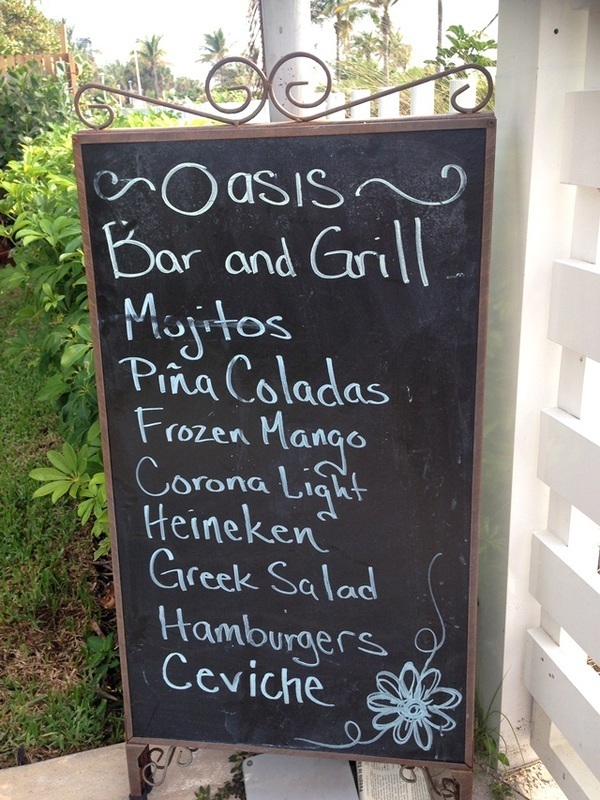 Oasis
Bar and Grill
Mojitos
Piña Coladas
Frozen Mango
Corona Light
Heineken
Greek Salad
Hamburgers
Ceviche